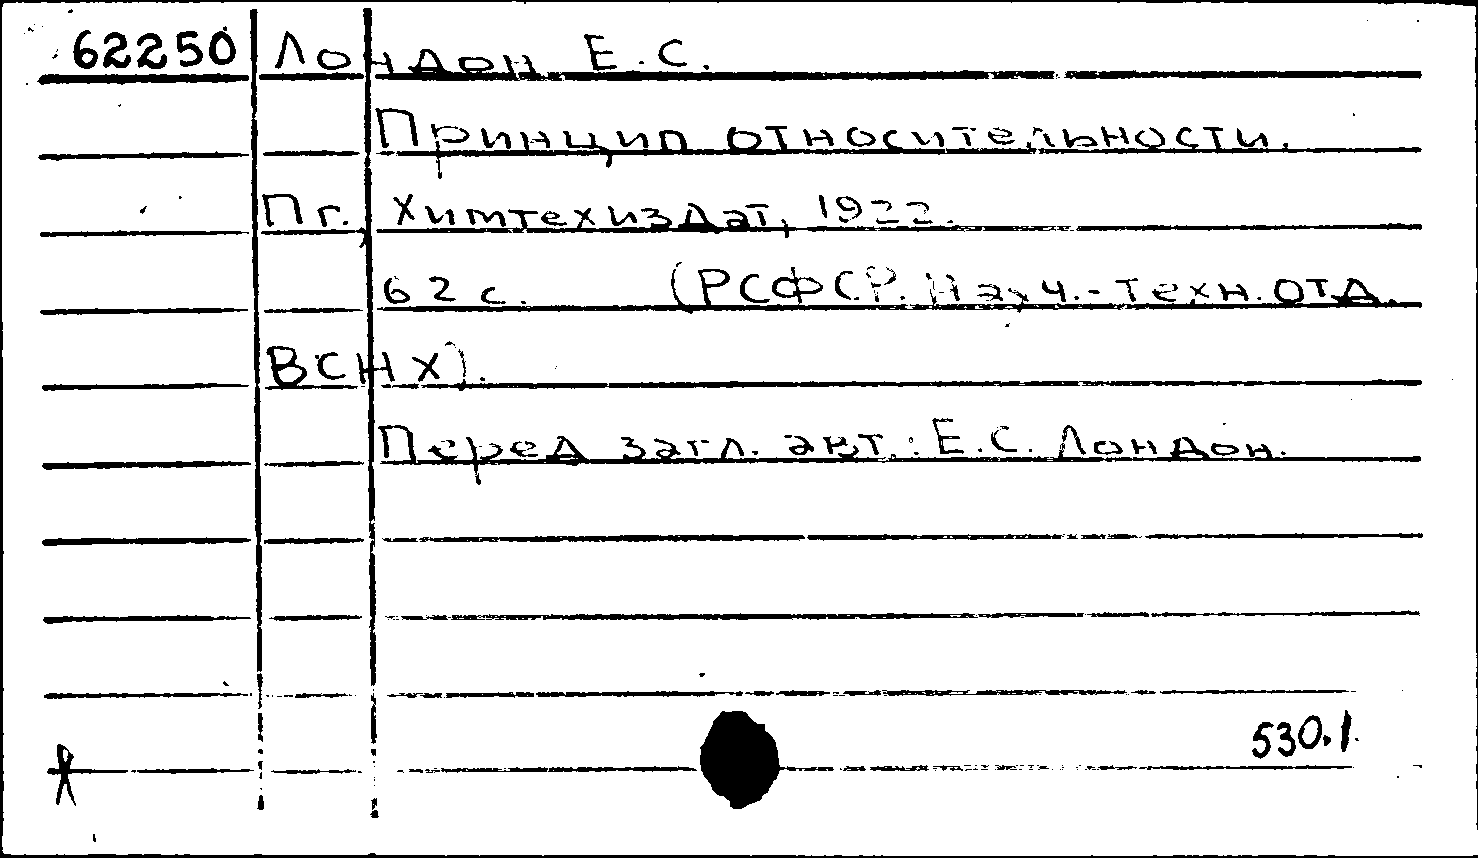 62250 Лондон Е.С.
Принцип относительности.
Пг., Химтехиздат, 1922.
62 с. (РСФСР. Науч.-техн. отд.
ВСНХ).
Перед загл. авт.: Е.С. Лондон.
530.1